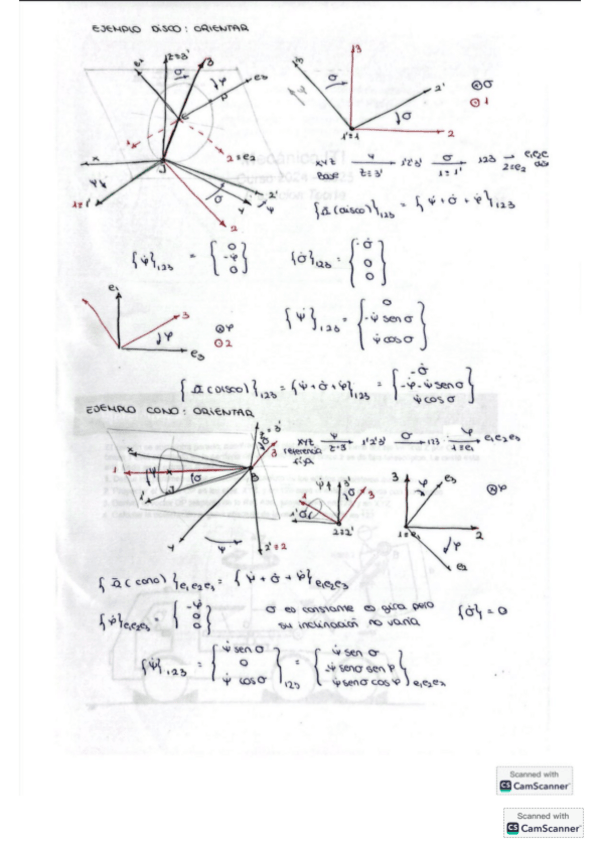 EJEMPLO DISCO: ORIENTAR
Z≡3'
3
e3
σ
φ
1
2=e2
x
ψ
1≡1'
2'
y
ψ
σ
2
3
σ
2'
σ
2
1'≡1
⊗σ
⊙1
XYZ ψ→ 1'2'3' σ→ 123 →
Base Z≡3' 1≡1' 2≡e2
{Ω(disco)}123 = {ψ̇ + σ̇ + φ̇}123
{φ̇}123 = {0 -φ̇ 0}
{σ̇}123 = {-σ̇ 0 0}
e1
3
φ
e3
⊗φ
⊙2
{ψ̇}123 = {0 -ψ̇ sen σ ψ̇ cos σ}
{Ω(disco)}123 = {ψ̇ + σ̇ + φ̇}123 = {-σ̇ -φ̇ - ψ̇ sen σ ψ̇ cos σ}
EJEMPLO CONO: ORIENTAR
Z≡3'
σ
3
x
1
φ
σ
1'
Y
ψ
2'≡2
XYZ ψ→ 1'2'3' σ→ 123 φ→ e1e2e3
referencia Z≡3' 1≡e1
fija
ψ̇
3'
σ
3
1
1'
σ
2≡2'
3
φ
e3
1≡e1
2
φ
e2
⊗φ
{Ω(cono)}e1e2e3 = {ψ̇ + σ̇ + φ̇}e1e2e3
{φ̇}e1e2e3 = {-φ̇ 0 0}
σ es constante es gira pero
su inclinación no varía
{σ̇} = 0
{ψ̇}123 = {ψ̇ sen σ 0 ψ̇ cos σ}123 = {ψ̇ sen σ -ψ̇ sen σ sen φ ψ̇ sen σ cos φ}e1e2e3
Scanned with
CS CamScanner
Scanned with
CS CamScanner